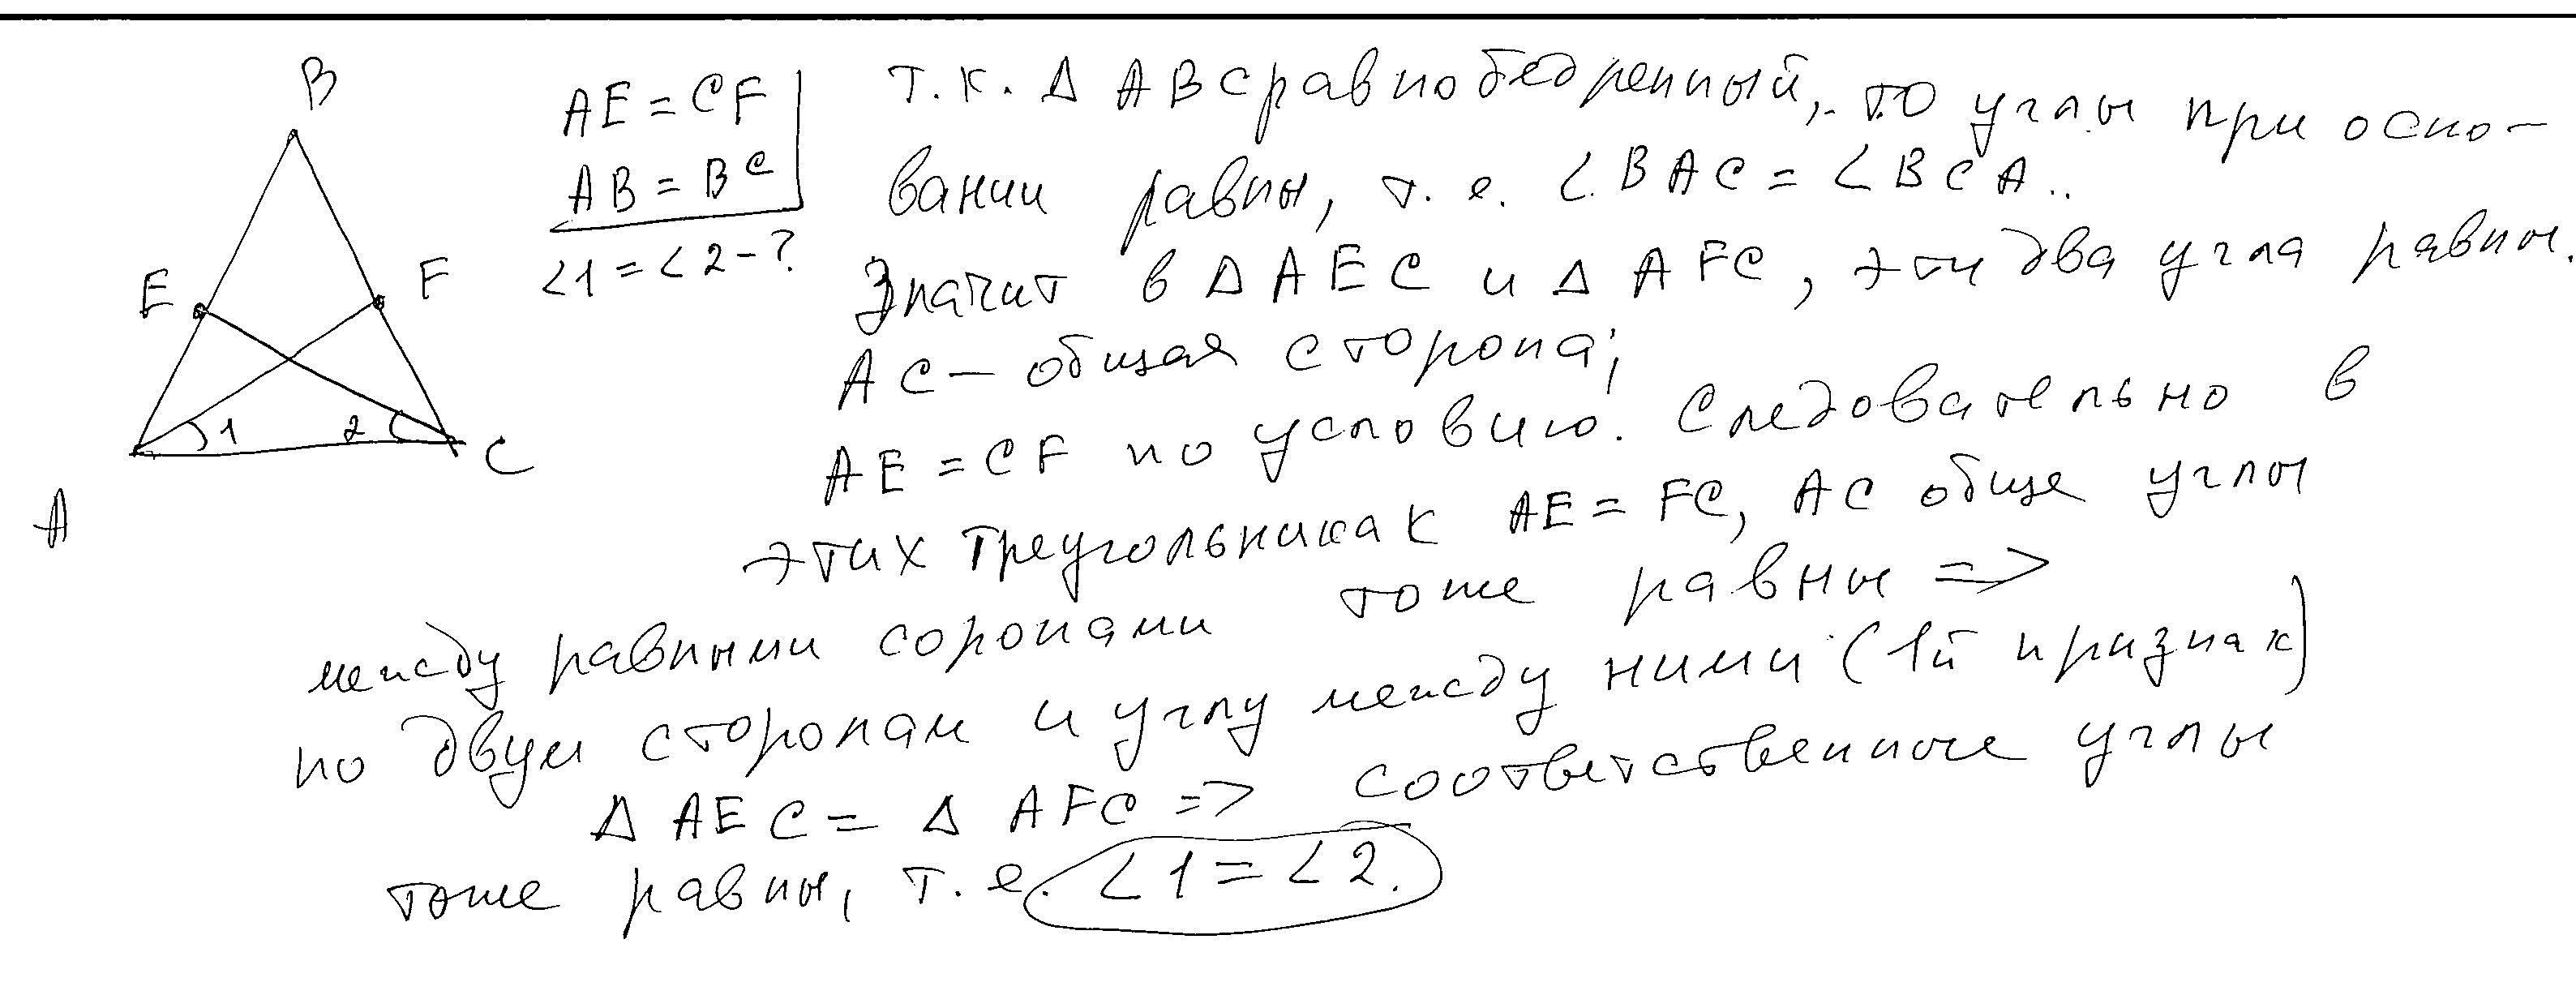 B
E
F
1
2
C
A
AE = CF
AB = BC
∠1 = ∠2 - ?
т.к. Δ ABC равнобедренный, то углы при осно-
вании равны, т.е. ∠BAC = ∠BCA.
Значит в Δ AEC и Δ AFC, эти два угла равны.
AC – общая сторона;
AE = CF по условию. Следовательно в
этих треугольниках AE = FC, AC обще углы
между равными соронами тоже равны =>
по двум сторонам и углу между ними (1й признак)
Δ AEC = Δ AFC => соответственные углы
тоже равны, т.е. ∠1 = ∠2.